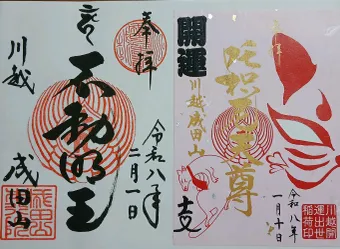 奉拝
不動明王
川越
成田山
令和八年
二月一日
開運
川越成田山
吒枳尼天尊
令和八年
一月十日
川越開
運出世
稲荷印